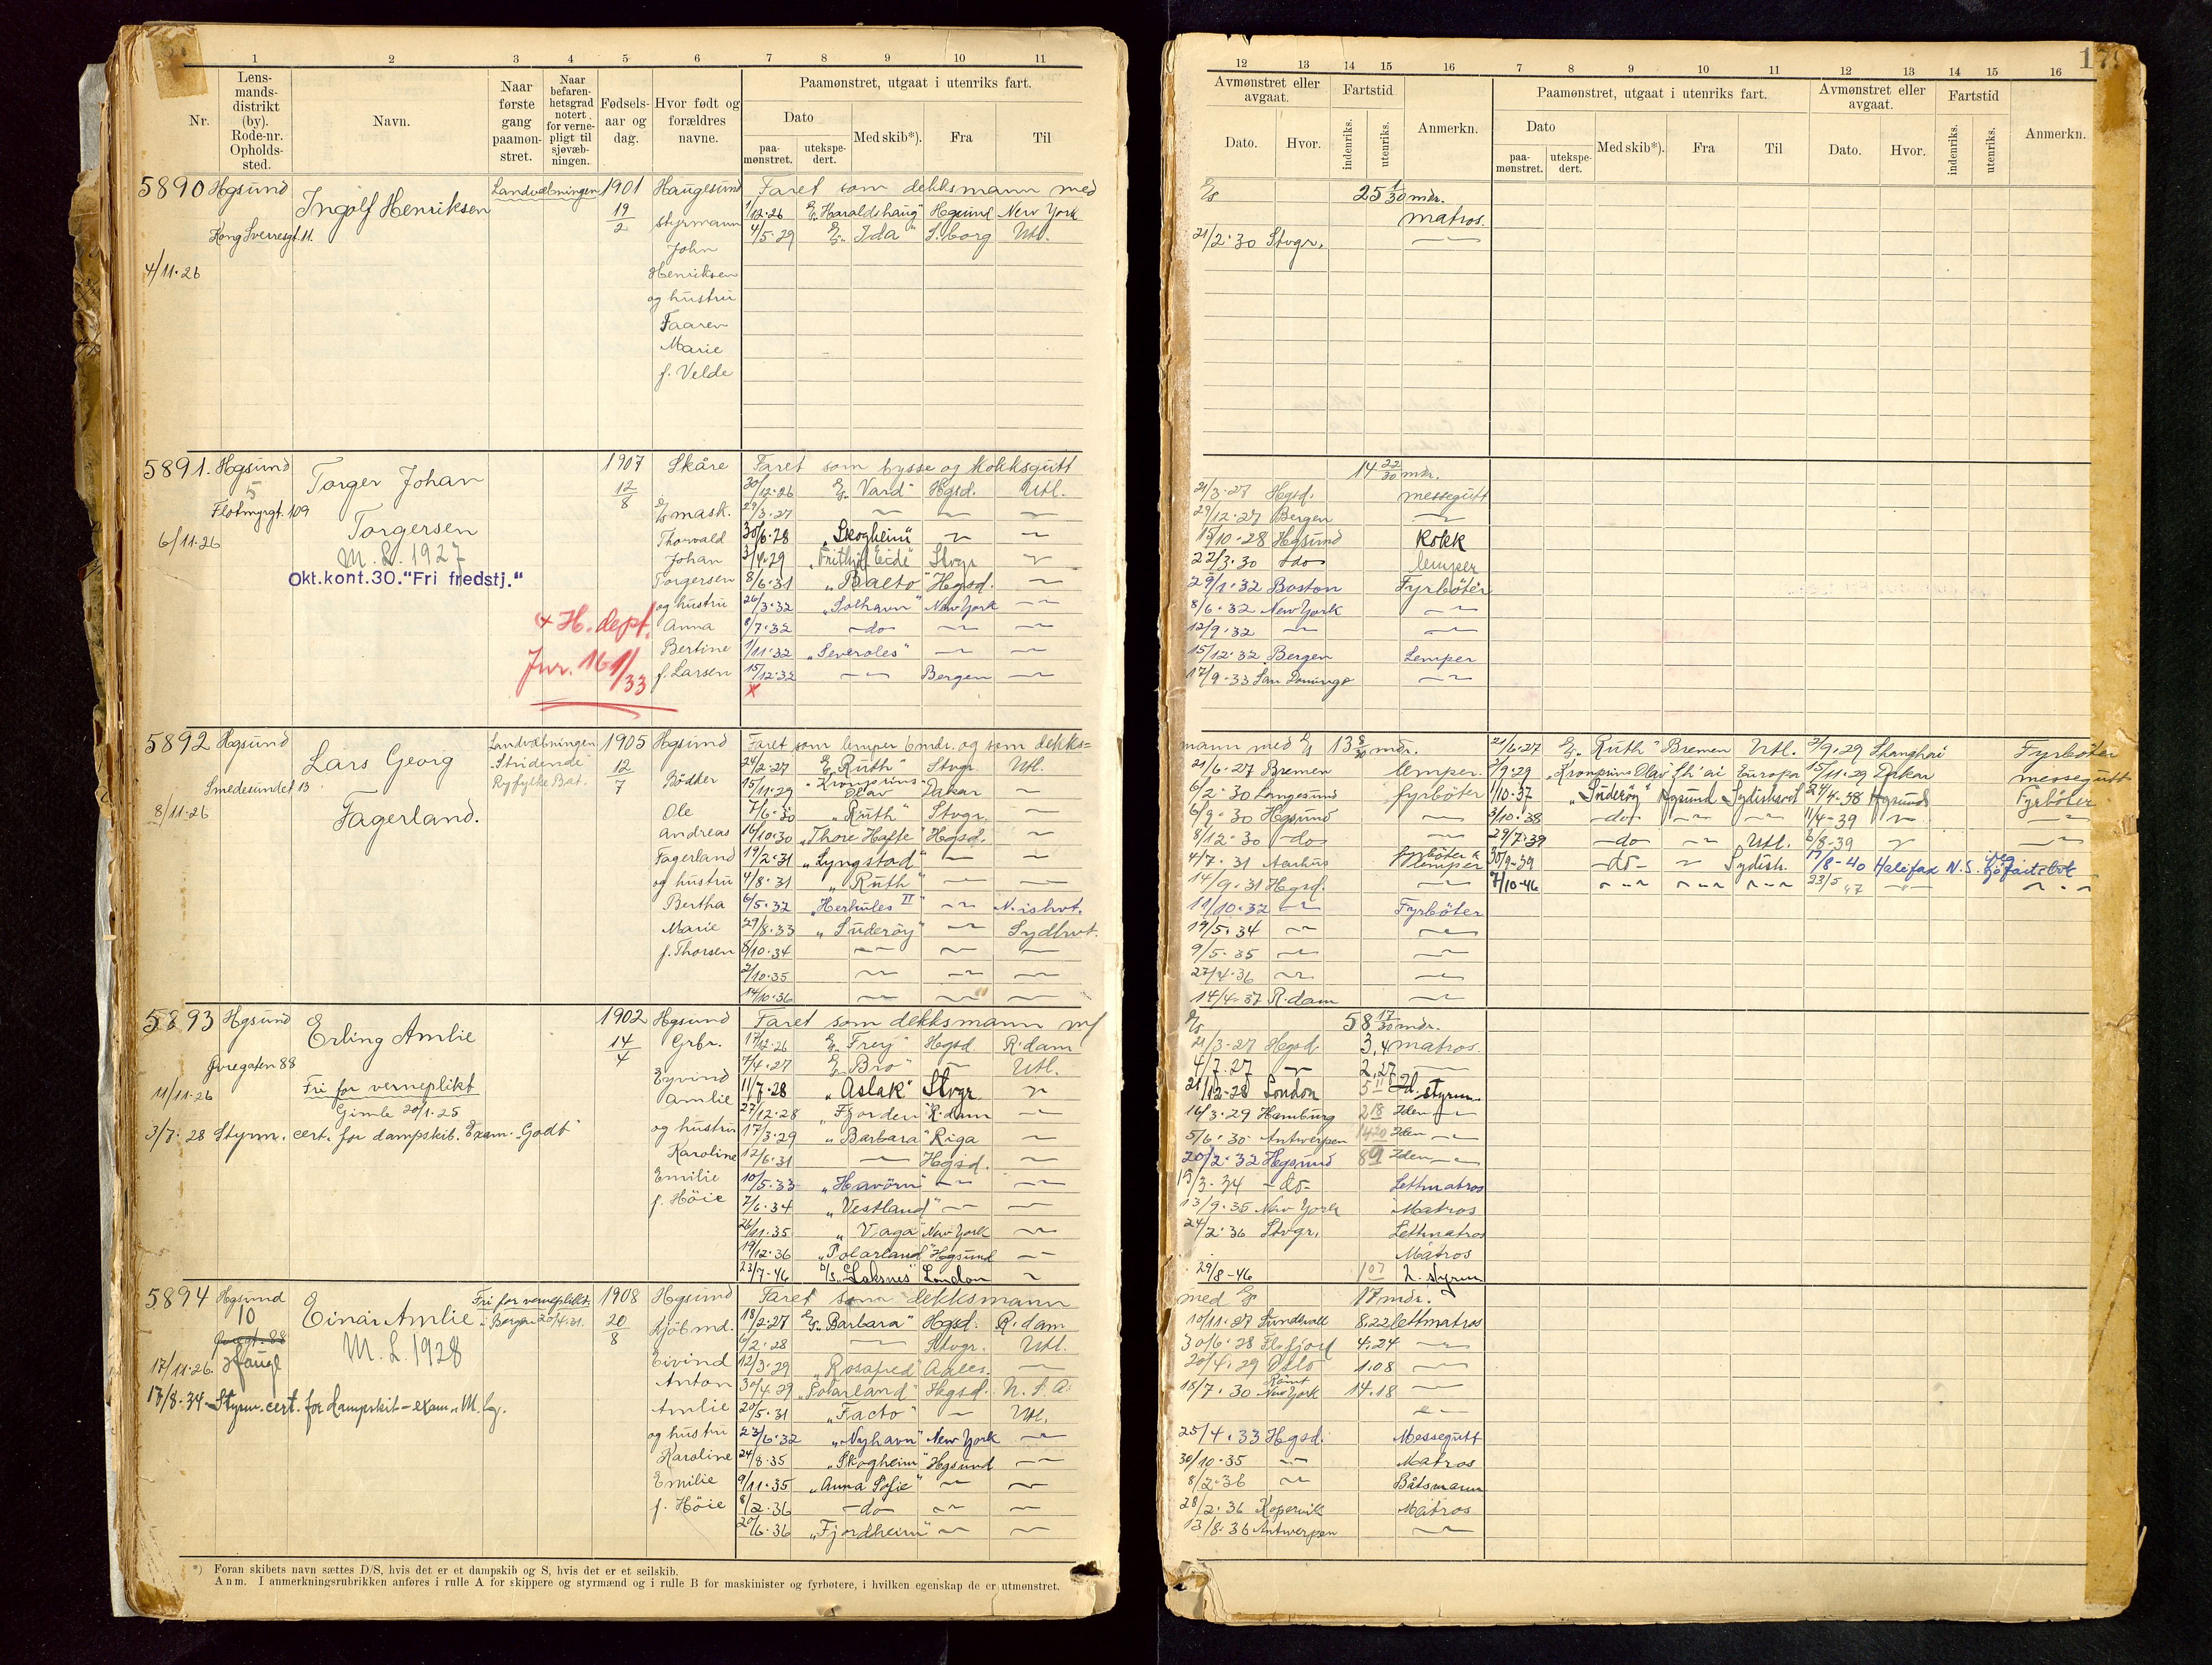 1 2 3 4 5 6 7 8 9 10 11
Nr.
Lensmandsdistrikt (by). Rode-nr. Opholdssted.
Navn.
Naar første gang paamønstret.
Naar befarenhetsgrad notert for vernepligt til sjøvæbningen.
Fødselsaar og dag.
Hvor født og forældres navne.
Paamønstret, utgaat i utenriks fart.
Dato
paamønstret.
utekspedert.
Med skib*).
Fra
Til
5890 Hgsund Ingolf Henriksen Landvæbningen 1901 Haugesund Faret som dekksmann med
19/2 styrmann 1/12-26 "Haraldshaug" Hgsund New York
Kong Sverresgt. 11. John 4/5-29 "Ida" S.borg Utl.
4/11-26 Henriksen
og hustru
Faaren
Marie
f. Velde
5891. Hgsund Torger Johan 1907 Skåre Faret som bysse og kokksgutt
5 12/8 30/12-26 "Vard" Hgsd. Utl.
Flotmyrgt. 109 mask. 29/3-27
6/11-26 Torgersen Thorvald 30/6-28 "Skogheim"
M.L. 1927 Johan 3/4-29 "Frithjof Eide" Stvgr
Okt.kont.30."Fri fredstj." Torgersen 8/6-31 "Balto" Hgsd.
og hustru 26/3-32 "Solhavn" New York
H. dept. Anna 8/7-32 -do-
Bertine 1/11-32 "Severoles"
Jnr. 161/33 f. Larsen 15/12-32 Bergen
x
5892 Hgsund Lars Georg Landvæbningen 1905 Hgsund Faret som lemper 6 mdr. og som dekks=
"Stridende" 12/7 24/2-27 "Ruth" Stvgr. Utl.
Smedesundet 13 Ryfylke Bat. Bödker 15/11-29 "Kronprins Olav" Dakar
8/11-26 Fagerland. Ole 7/6-30 "Ruth" Stvgr.
Andreas 16/10-30 "Thore Hafte" Hgsd.
Fagerland 19/2-31 "Lyngstad"
og hustru 4/8-31 "Ruth"
Bertha 6/5-32 "Herkules II" N.ishvt.
Marie 29/8-33 "Suderøy" Sydhvt.
f. Thorsen 8/10-34
2/10-35
14/10-36
5893 Hgsund Erling Amlie 1902 Hgsund Faret som dekksmann m/
14/4 Grbr. 17/12-26 "Frey" Hgsd R.dam
Øvregaten 88 Eyvind 7/4-27 "Bro" Utl.
11/11-26 Fri for verneplikt Amlie 11/7-28 "Aslak" Stvgr
Gimle 20/1-25 og hustru 27/12-28 "Fjorden" R.dam
3/7-28 Styrm. cert. for dampskib. Exam. "Godt" 17/3-29 "Barbara" Riga
Karoline 12/6-31 Hgsd.
Emilie 10/5-33 "Havörn"
f. Höie 7/6-34 "Vestland"
26/11-35 "Vaga" New York
19/12-36 "Polarland" Hgsund
23/7-46 D/S "Laksnes" London
5894 Hgsund Einar Amlie Fri for verneplikt. 1908 Hgsund Faret som dekksmann
10 i Bergen 20/4.31. 20/8 18/2-27 "Barbara" Hgsd. R.dam
M.L. 1928 6/2-28 Stvgr. Utl.
17/11-26. Eivind 12/3-29 "Rosafred"
Anton 30/4-29 "Polarland" Hgsd. U.S.A.
17/8-34 Styrm. cert. for dampskib-exam. "M. Amlie 20/5-31 "Facto" Utl.
og hustru 23/6-32 "Nyhavn" New York
Karoline 24/8-35 "Skogheim" Hgsund
Emilie 9/11-35 "Anna Sofie"
f. Höie 8/2-36 -do-
20/6-36 "Fjordheim"
*) Foran skibets navn sættes D/S, hvis det er et dampskib og S, hvis det er et seilskib.
Anm. I anmerkningsrubrikken anføres i rulle A for skippere og styrmænd og i rulle B for maskinister og fyrbøtere, i hvilken egenskap de er utmønstret.
12 13 14 15 16 7 8 9 10 11 12 13 14 15 16
Avmønstret eller avgaat.
Dato.
Hvor.
Fartstid
indenriks.
utenriks.
Anmerkn.
Paamønstret, utgaat i utenriks fart.
Dato
paamønstret.
utekspedert.
Med skib*).
Fra
Til
Avmønstret eller avgaat.
Dato.
Hvor.
Fartstid
indenriks.
utenriks.
Anmerkn.
25 1/30 mdr.
matros.
21/2-30 Stvgr.
14 22/30 mdr.
21/3-27 Hgsd. messegutt
29/12-27 Bergen
15/10-28 Hgsund Kokk
22/3-30 -do- lemper
29/1-32 Boston Fyrböter
8/6-32 New York
12/9-32
15/12-32 Bergen Lemper
17/9-33 San Domingo
mann med 13 8/30 mdr. 21/6-27 "Ruth" Bremen Utl. 2/9-29 Shanghai Fyrböter
21/6-27 Bremen lemper. 2/9-29 "Kronprins Olav" Sh'ai Europa 15/11-29 Dakar messegutt
6/2-30 Langesund fyrböter 1/10-37 "Suderöy" Hgsund 24/4-38 Hgsund Fyrböter
6/9-30 Hgsund 3/10-38 -do- 11/4-39
8/12-30 -do- 29/7-39 -do- Utl. 6/8-39
4/7-31 Aarhus fyrböter & lemper 30/9-39 -do- Sydish. 17/8-40 Halifax N.S.
14/9-31 Hgsd. 7/10-46 23/5 47
11/10-32 Fyrböter
19/5-34
9/5-35
27/4-36
14/4-37 R.dam
58 17/30 mdr.
21/3-27 Hgsd. 3,4 matros.
4/7-27 2,27
21/12-28 London 5 11 2d. styrm.
16/3-29 Hamburg 2 18 2den
5/6-30 Antwerpen 14 20 2den
20/2-32 Hgsund 8 9 2den
13/3-34 -do- Lettmatros
13/9-35 New York Matros
24/2-36 Stvgr. Lettmatros
Matros
29/8-46 1 07 2. styrm
med 17 mdr.
10/11-27 Sundsvall 8.22 lettmatros
30/6-28 Flofjord 4.24
20/4-29 Oslo 1.08
18/7-30 New York 14.18
25/4-33 Hgsd. Messegutt
30/10-35 Matros
8/2-36 Båtsmann
28/2-36 Kopervik Matros
13/8-36 Antwerpen